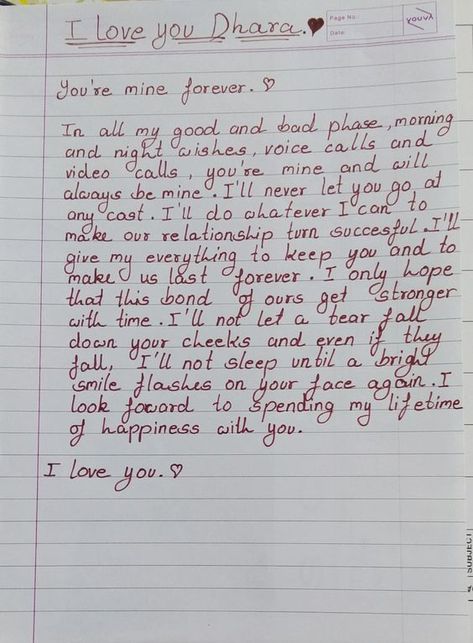 I love you Dhara.♥
Page No.
Date:
YOUVA
You're mine forever. ♡
In all my good and bad phase, morning
and night wishes, voice calls and
video calls, you're mine and will
always be mine. I'll never let you go at
any cost. I'll do whatever I can to
make our relationship turn succesful. I'll
give my everything to keep you and to
make us last forever. I only hope
that this bond of ours get stronger
with time. I'll not let a tear fall
down your cheeks and even if they
fall, I'll not sleep until a bright
smile flashes on your face again. I
look foward to spending my lifetime
of happiness with you.
I love you. ♡
SUBJECT